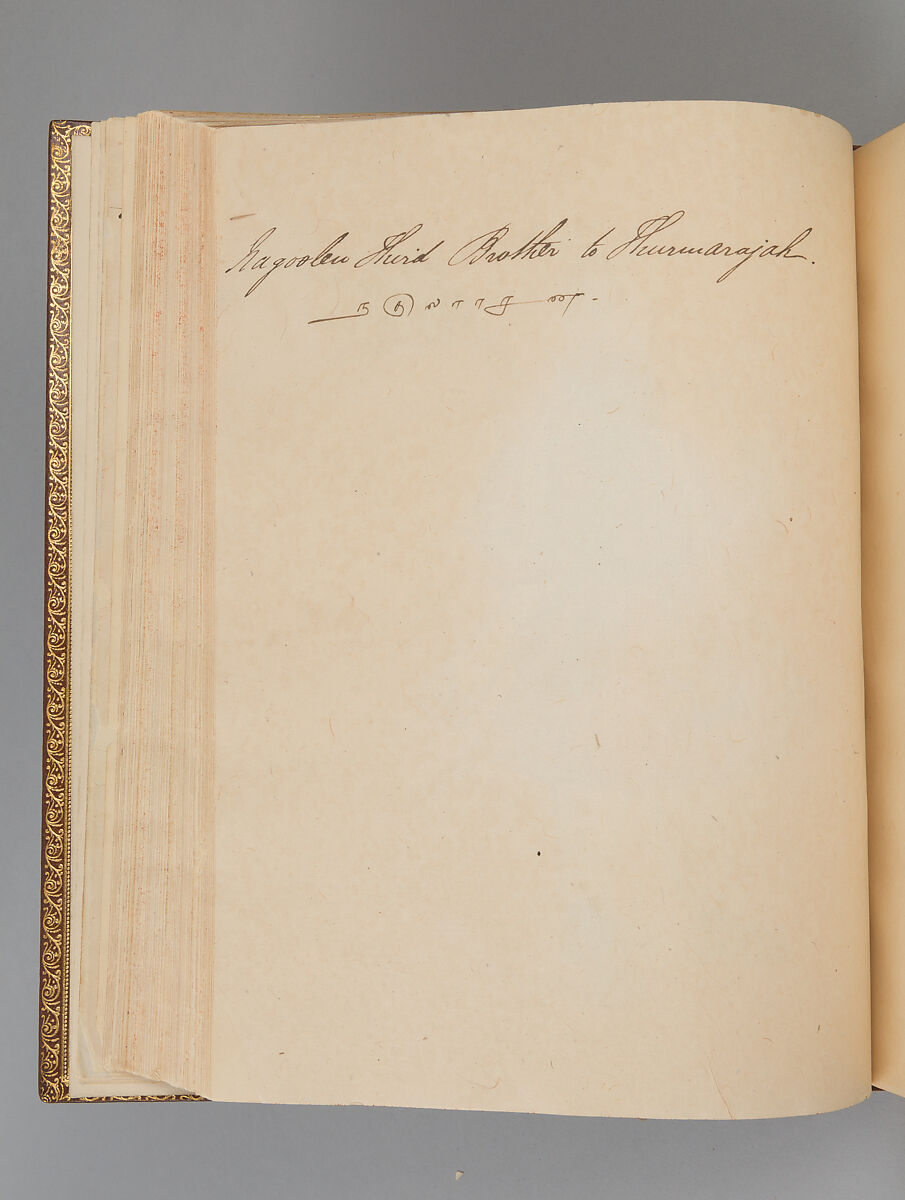 Nagoolen Third Brother to Thurmarajah.
நகுலராசன் -